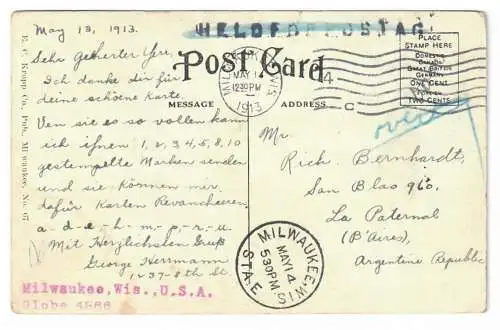 May 13, 1913.
HELD FOR POSTAGE
Sehr Geherter Hr.,
Post Card
Ich danke dir für
deine schöne Karte.
MESSAGE
ADDRESS
Ven sie es so vollen kann
ich ihnen 1, 2, 3, 4, 5, 8, 10
gestempelte Marken senden
und sie können mir
dafür Karten Revancheeren
a-d-e-h-m-p-r-u.
Mit Herzlichsten Gruß
George Herrmann
1237-8th St.
Milwaukee, Wis., U.S.A.
Globe 4566
E. C. Kropp Co., Pub. Milwaukee, No. 67
MILWAUKEE, WIS.
MAY 14
1230PM
1913
4
C
PLACE
STAMP HERE
DOMESTIC
CANADA
GREAT BRITAIN
GERMANY
ONE CENT
FOREIGN
TWO CENTS
over
Mr.
Rich. Bernhardt,
San Blas 960.
La Paternal
(B'Aires),
Argentine Republic
MILWAUKEE, WIS.
MAY 14
530PM
STA. E